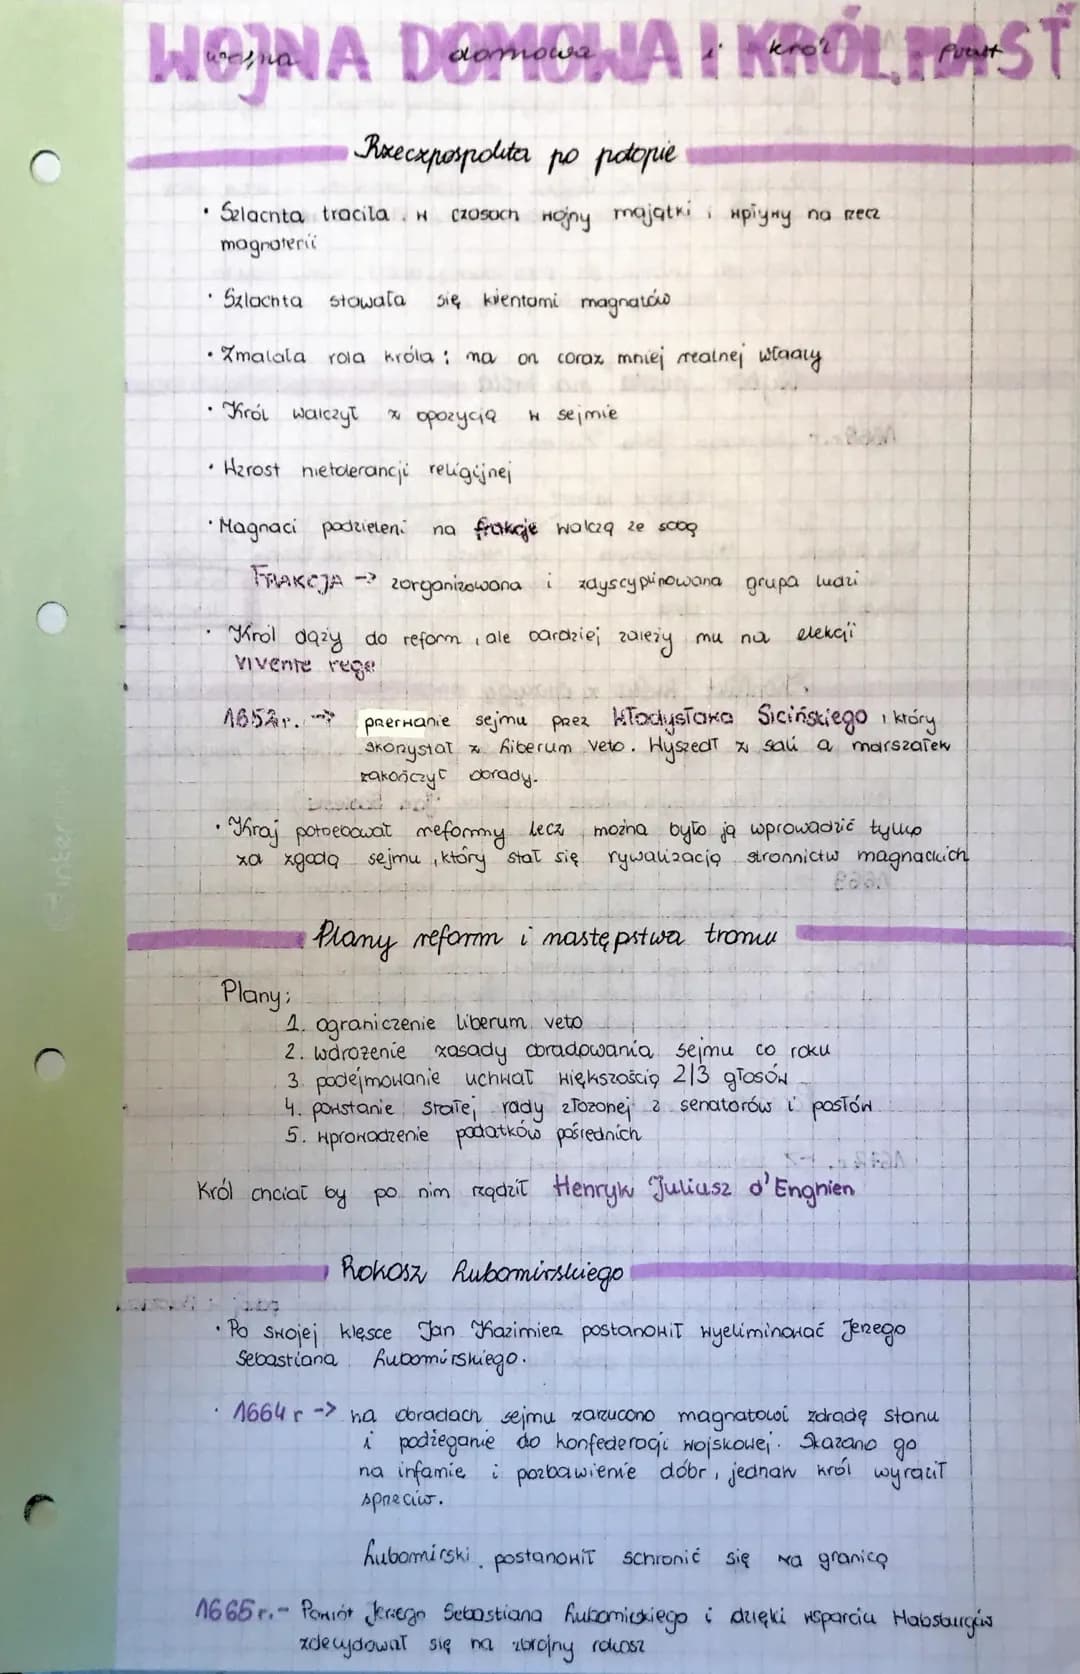 WOJNA DOMOWA I KRÓL PIAST
wojna domowa i król piast
Rzeczpospolita po potopie
• Szlachta traciła w czasach wojny majątki i wpływy na rzecz
magnaterii
• Szlachta stawała się klientami magnatów
• Zmalała rola króla: ma on coraz mniej realnej władzy
• Król walczył z opozycją w sejmie
• Wzrost nietolerancji religijnej
• Magnaci podzieleni na frakcje walczą ze sobą
FRAKCJA -> zorganizowana i zdyscyplinowana grupa ludzi
• Król dąży do reform, ale bardziej zależy mu na elekcji
vivente rege
1652r. -> przerwanie sejmu przez Władysława Sicińskiego, który
skorzystał z liberum veto. Wyszedł z sali a marszałek
zakończył obrady.
• Kraj potrzebował reformy lecz można było ją wprowadzić tylko
za zgodą sejmu, który stał się rywalizacją stronnictw magnackich
Plany reform i następstwa tronu
Plany:
1. ograniczenie liberum veto
2. wdrożenie zasady obradowania sejmu co roku
3. podejmowanie uchwał większością 2/3 głosów
4. powstanie stałej rady złożonej z senatorów i posłów
5. wprowadzenie podatków pośrednich
Król chciał by po nim rządził Henryk Juliusz d'Engnien
Rokosz Lubomirskiego
• Po swojej klęsce Jan Kazimierz postanowił wyeliminować Jerzego
Sebastiana Lubomirskiego.
• 1664 r -> na obradach sejmu zarzucono magnatowi zdradę stanu
i podżeganie do konfederacji wojskowej. Skazano go
na infamie i pozbawienie dóbr, jednak król wyraził
sprzeciw.
Lubomirski postanowił schronić się za granicą
1665 r.- Powrót Jerzego Sebastiana Lubomirskiego i dzięki wsparciu Habsburgów
zdecydował się na zbrojny rokosz